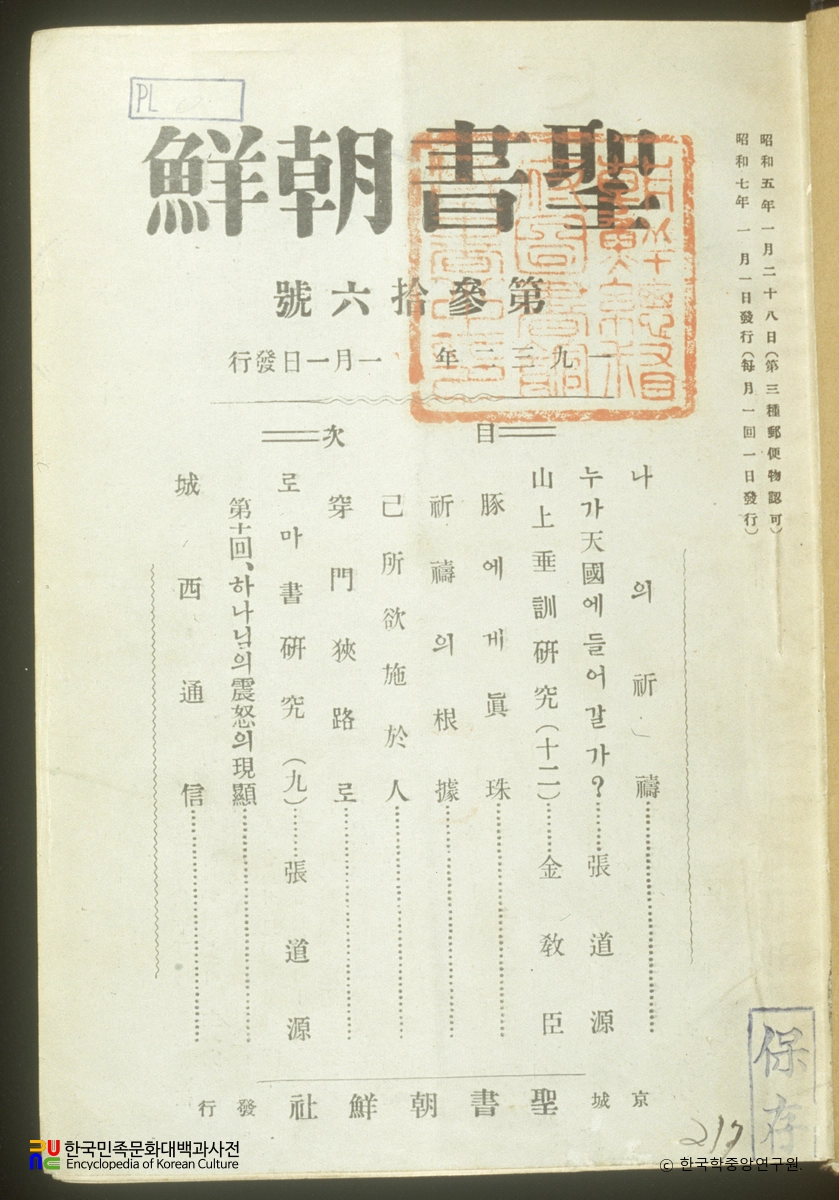 昭和五年一月二十八日(第三種郵便物認可)
昭和七年一月一日發行(每月一回一日發行)
PL
聖書朝鮮
第參拾六號
一九三二年一月一日發行
目次
나의祈禱
누가天國에들어갈가?……張道源
山上垂訓研究(十二)……金敎臣
豚에게眞珠
祈禱의根據
己所欲施於人
穿門狹路로
로마書研究(九)……張道源
第十回、하나님의震怒의現顯
城西通信
京城 聖書朝鮮社 發行
保存
217
한국민족문화대백과사전
Encyclopedia of Korean Culture
© 한국학중앙연구원